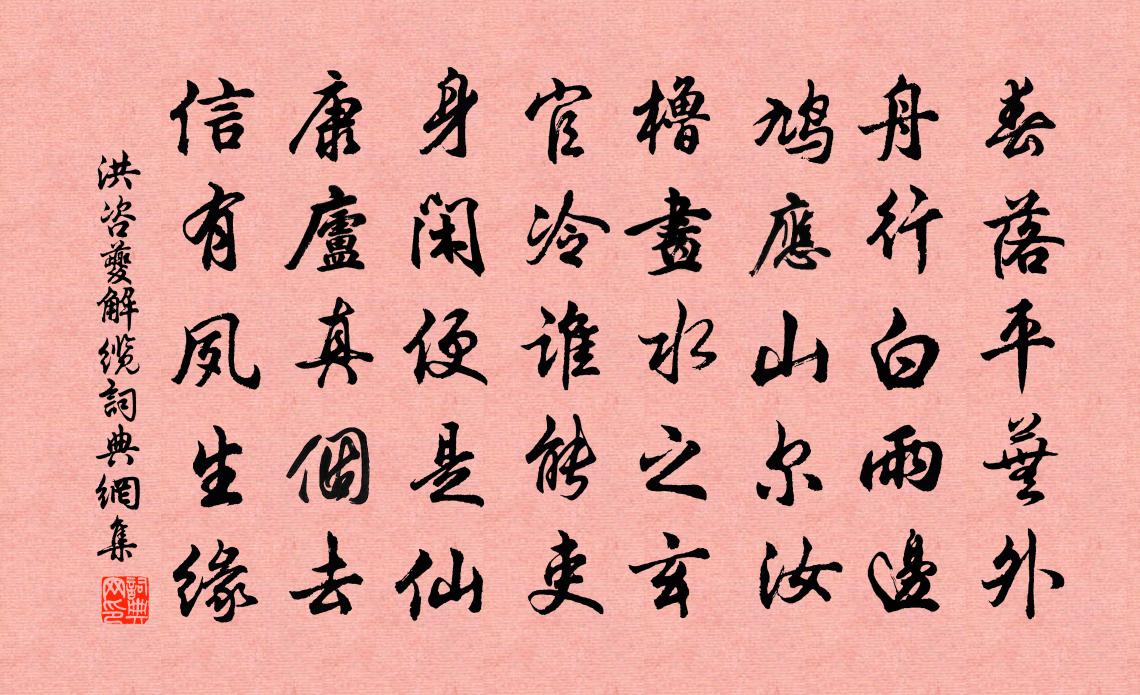 春落平蕪外
舟行白雨邊
鳩應山尔汝
櫓畫水之玄
官冷誰能吏
身閑便是仙
康廬真個去
信有夙生緣
洪咨夔解纜詞典網集
詞典網印